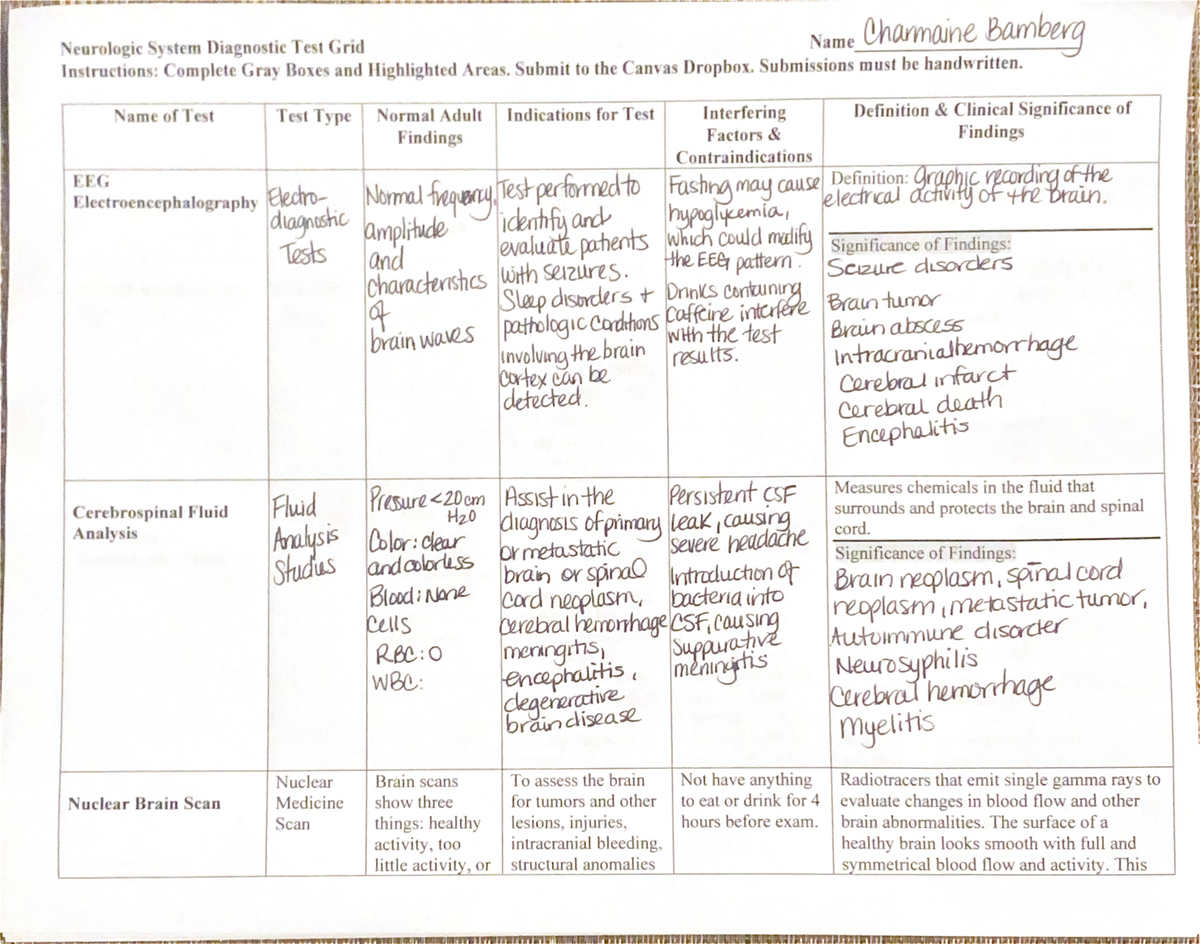 Neurologic System Diagnostic Test Grid
Name Charmaine Bamberg
Instructions: Complete Gray Boxes and Highlighted Areas. Submit to the Canvas Dropbox. Submissions must be handwritten.
Name of Test
Test Type
Normal Adult
Findings
Indications for Test
Interfering
Factors &
Contraindications
Definition & Clinical Significance of
Findings
EEG
Electroencephalography
Electro-
diagnostic
Tests
Normal frequency,
amplitude
and
characteristics
of
brain waves
Test performed to
identify and
evaluate patients
with seizures.
Sleep disorders +
pathologic conditions
involving the brain
cortex can be
detected.
Fasting may cause
hypoglycemia,
which could modify
the EEG pattern.
Drinks containing
caffeine interfere
with the test
results.
Definition: Graphic recording of the
electrical activity of the brain.
Significance of Findings:
Seizure disorders
Brain tumor
Brain abscess
Intracranial hemorrhage
Cerebral infarct
Cerebral death
Encephalitis
Cerebrospinal Fluid
Analysis
Fluid
Analysis
Studies
Pressure < 20cm
H2O
Color: clear
and colorless
Blood: None
Cells
RBC: 0
WBC:
Assist in the
diagnosis of primary
or metastatic
brain or spinal
cord neoplasm,
cerebral hemorrhage
meningitis,
encephalitis,
degenerative
brain disease
Persistent CSF
leak, causing
severe headache
Introduction of
bacteria into
CSF, causing
suppurative
meningitis
Measures chemicals in the fluid that
surrounds and protects the brain and spinal
cord.
Significance of Findings:
Brain neoplasm, spinal cord
neoplasm, metastatic tumor,
Autoimmune disorder
Neurosyphilis
Cerebral hemorrhage
Myelitis
Nuclear Brain Scan
Nuclear
Medicine
Scan
Brain scans
show three
things: healthy
activity, too
little activity, or
To assess the brain
for tumors and other
lesions, injuries,
intracranial bleeding,
structural anomalies
Not have anything
to eat or drink for 4
hours before exam.
Radiotracers that emit single gamma rays to
evaluate changes in blood flow and other
brain abnormalities. The surface of a
healthy brain looks smooth with full and
symmetrical blood flow and activity. This